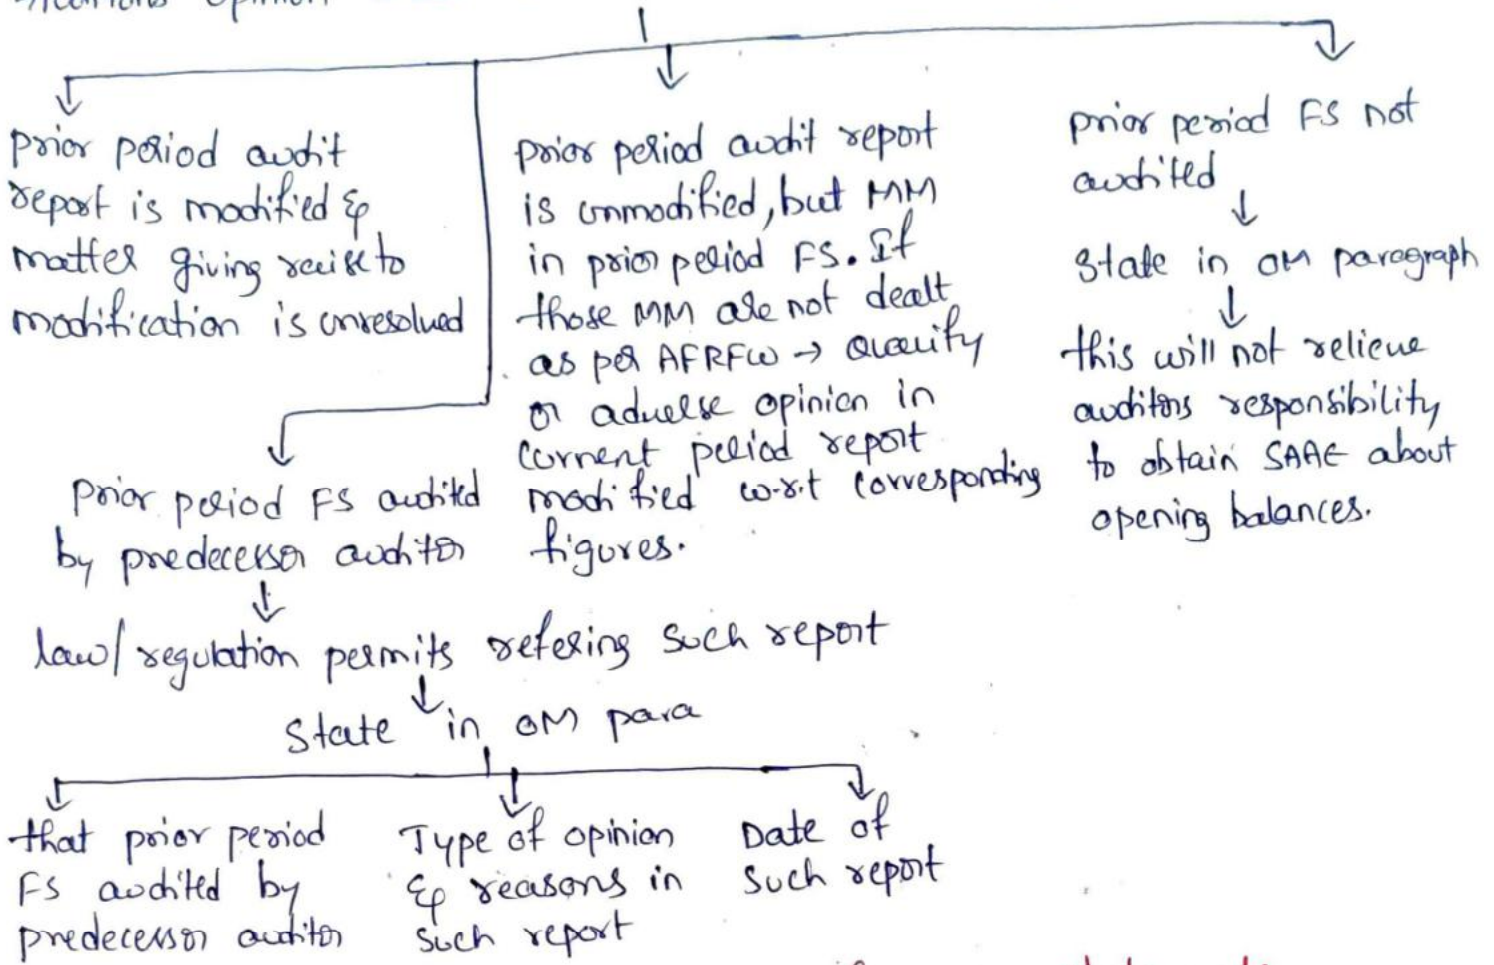 opinion
prior period audit
report is modified &
matter giving raise to
modification is unresolved
prior period audit report
is unmodified, but MM
in prior period FS. If
those MM are not dealt
as per AFRFW → Quality
or adverse opinion in
current period report
modified w.r.t corresponding
figures.
prior period FS not
audited
State in OM paragraph
this will not relieve
auditors responsibility
to obtain SAAE about
opening balances.
prior period FS audited
by predecessor auditor
law/regulation permits refering such report
State in OM para
that prior period
FS audited by
predecessor auditor
Type of opinion
& reasons in
such report
Date of
such report